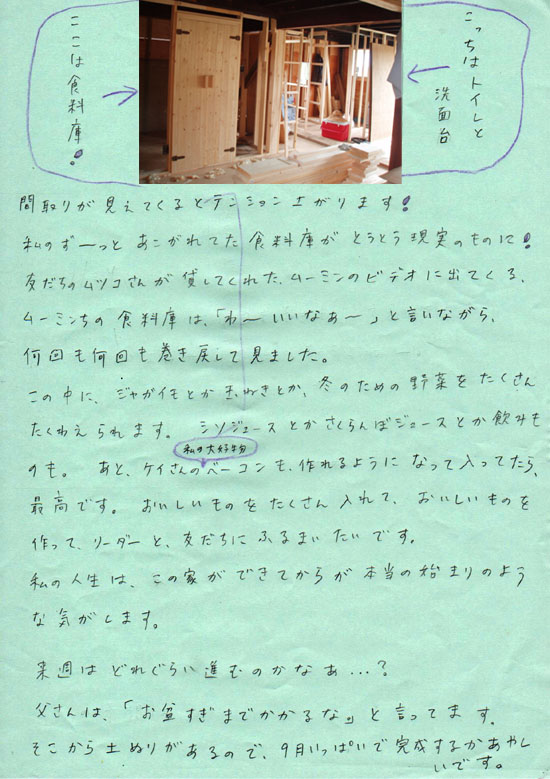 ここは食料庫！
こっちはトイレと
洗面台
間取りが見えてくるとテンション上がります！
私のず〜っとあこがれてた食料庫がとうとう現実のものに！
友だちのムツコさんが貸してくれた、ムーミンのビデオに出てくる、
ムーミンちの食料庫は、「わ〜いいなぁ〜」と言いながら、
何回も何回も巻き戻して見ました。
この中に、ジャガイモとか玉ねぎとか、冬のための野菜をたくさん
たくわえられます。シソジュースとかさくらんぼジュースとか飲みも
私の大好物
のも。あと、ケイさんのベーコンも、作れるようになって入ってたら、
最高です。おいしいものをたくさん入れて、おいしいものを
作って、リーダーと、友だちにふるまいたいです。
私の人生は、この家ができてからが本当の始まりのよう
な気がします。
来週はどれぐらい進むのかなぁ…？
父さんは、「お盆すぎまでかかるな。」と言ってます。
そこから土ぬりがあるので、9月いっぱいで完成するかあやし
いです。